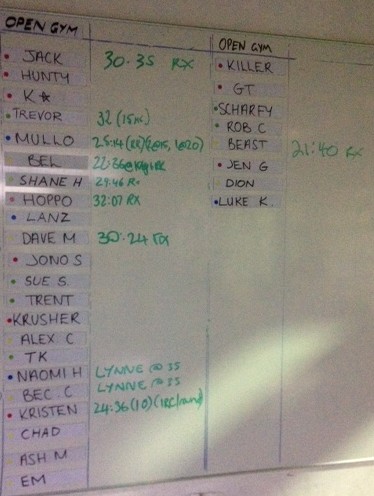 OPEN GYM
JACK 30:35 RX
HUNTY
K★
TREVOR 32 (15
MULLO 25:14 (RX)
BEL 22:36
SHANE H 29:46 Rx
HOPPO 32:07 RX
LANZ
DAVE M 30:24 rx
JONO S
SUE S.
TRENT
KRUSHER
ALEX C
TK
NAOMI H LYNNE @ 35
BEC. C LYNNE @ 35
KRISTEN 24:36 (10)
CHAD
ASH M
EM
OPEN GYM
KILLER
GT
SCHARFY
ROB C
BEAST 21:40 RX
JEN G
DION
LUKE K.